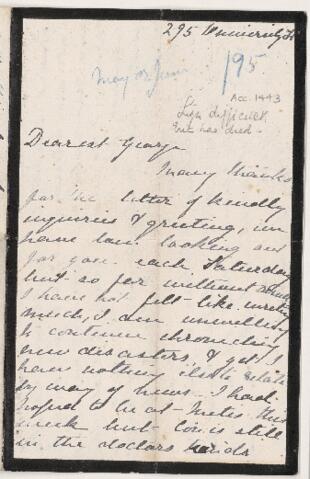 295 University St
May or June
/95
Acc. 1443
Life difficult
Eric has died.
Dearest George
Many thanks
for the letter of kindly
inquiries & greeting, we
have been looking out
for you each Saturday
but so far without
I have not felt like writing
much, I am unwilling
to continue chronicling
new disasters, & yet I
have nothing else to relate
by way of news. I had
hoped to be at Metis this
week but Con is still
in the doctors hands